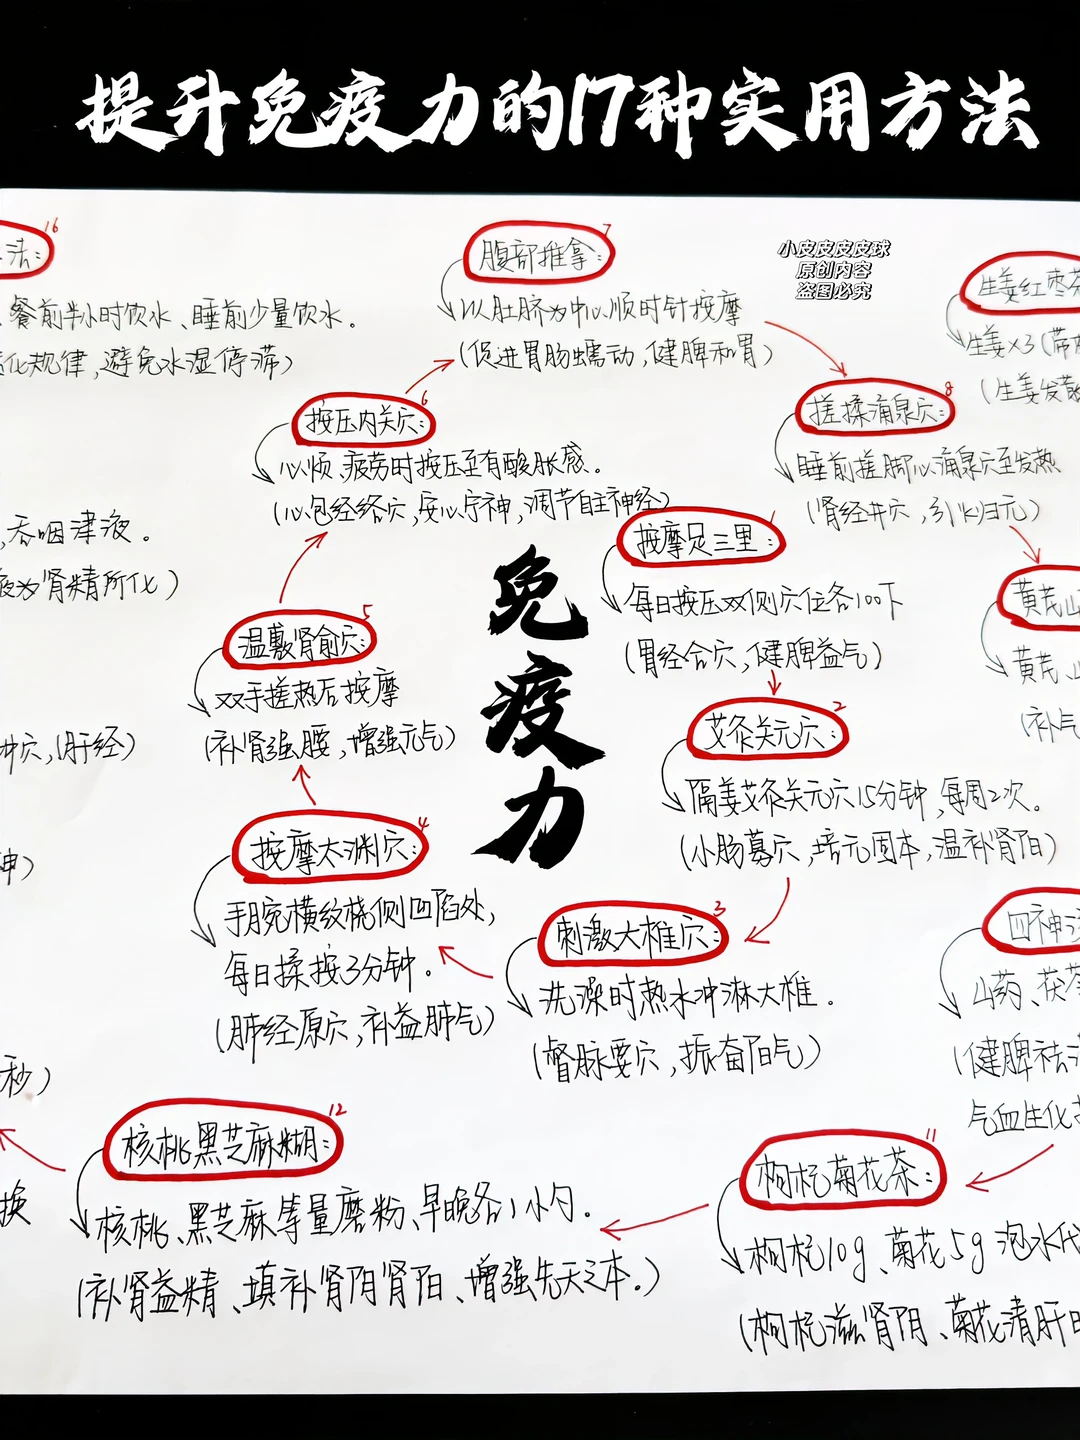 提升免疫力的17种实用方法
小皮皮皮皮球
原创内容
盗图必究
免疫力
1
按摩足三里:
每日按压双侧穴位各100下
(胃经合穴,健脾益气)
2
艾灸关元穴:
隔姜艾灸关元穴15分钟,每周2次。
(小肠募穴,培元固本,温补肾阳)
3
刺激大椎穴:
洗澡时热水冲淋大椎。
(督脉要穴,振奋阳气)
4
按摩太渊穴:
手腕横纹桡侧凹陷处,
每日揉按3分钟。
(肺经原穴,补益肺气)
5
温敷肾俞穴:
双手搓热后按摩
(补肾强腰,增强元气)
6
按压内关穴:
心烦、疲劳时按压至有酸胀感。
(心包经络穴,安心宁神,调节自主神经)
7
腹部推拿:
以肚脐为中心顺时针按摩
(促进胃肠蠕动,健脾和胃)
8
搓揉涌泉穴:
睡前搓脚心涌泉穴至发热
(肾经井穴,引火归元)
黄芪山
黄芪山
(补气
生姜红枣茶
生姜×3(带
(生姜发散
四神
山药、茯苓
(健脾祛
气血生化
11
枸杞菊花茶:
枸杞10g、菊花5g泡水代
(枸杞滋肾阴、菊花清肝
12
核桃黑芝麻糊:
核桃、黑芝麻等量磨粉、早晚各1小勺.
(补肾益精、填补肾阴肾阳、增强先天之本。)
换
秒)
神)
冲穴,(肝经)
,吞咽津液。
液为肾精所化)
16
法:
、餐前半小时饮水、睡前少量饮水.
化规律,避免水湿停滞)